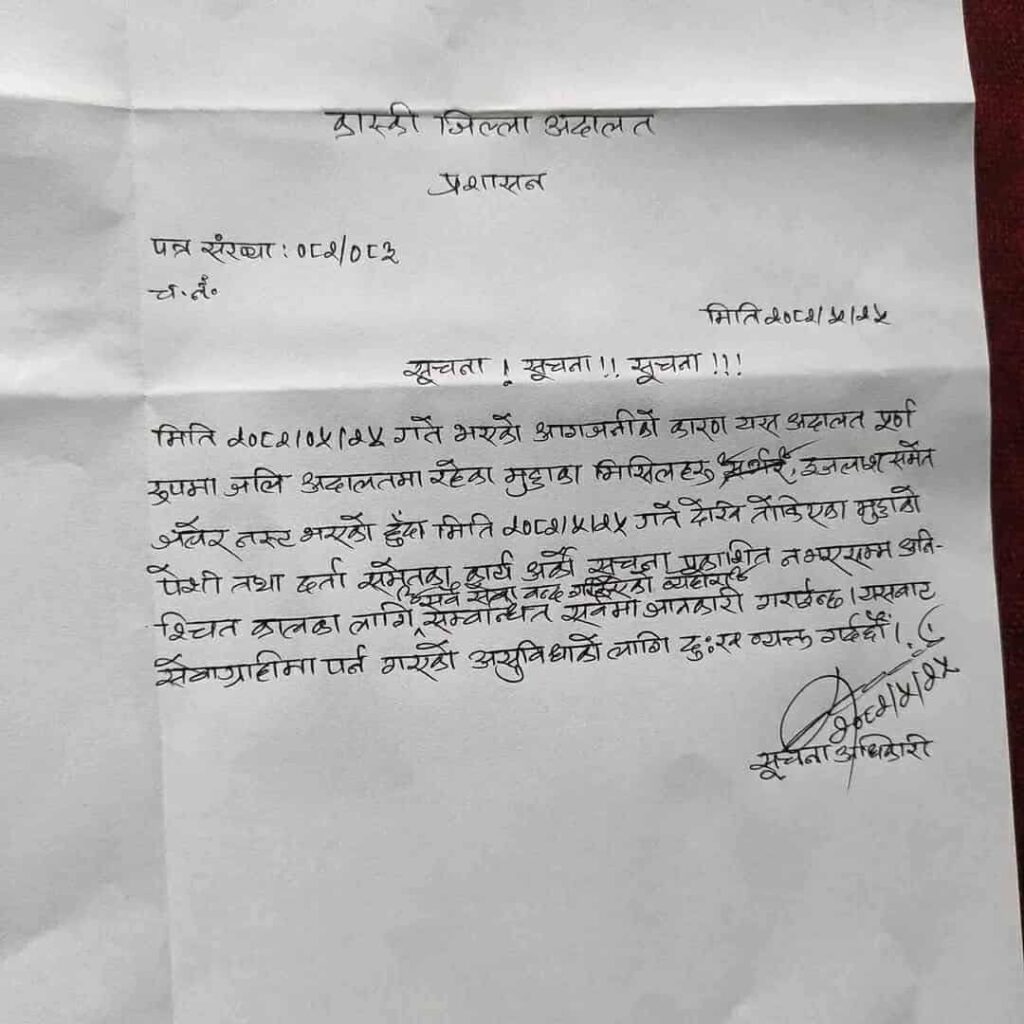 कास्की जिल्ला अदालत
प्रशासन
पत्र संख्या : ०८२/०८३
च. नं.
मिति २०८२/५/२५
सूचना ! सूचना !! सूचना !!!
मिति २०८२/०५/२५ गते भएको आगजनीको कारण यस अदालत पूर्ण
रुपमा जलि अदालतमा रहेका मुद्दाका मिसिलहरु , इजलाश समेत
जलेर नस्ट भएको हुँदा मिति २०८२/५/२५ गते देखि तोकिएका मुद्दाको
पेशी तथा दर्ता समेतका कार्य अर्को सूचना प्रकाशित नभएसम्म अनि-
सबै सेवा बन्द गरिएको व्यहोरा
श्चित कालका लागि सम्वन्धित सवैमा जानकारी गराईन्छ । यसबाट
सेवाग्राहीमा पर्न गएको असुविधाको लागि दुःख व्यक्त गर्दछौं ।
२०८२/५/२५
सूचना अधिकारी